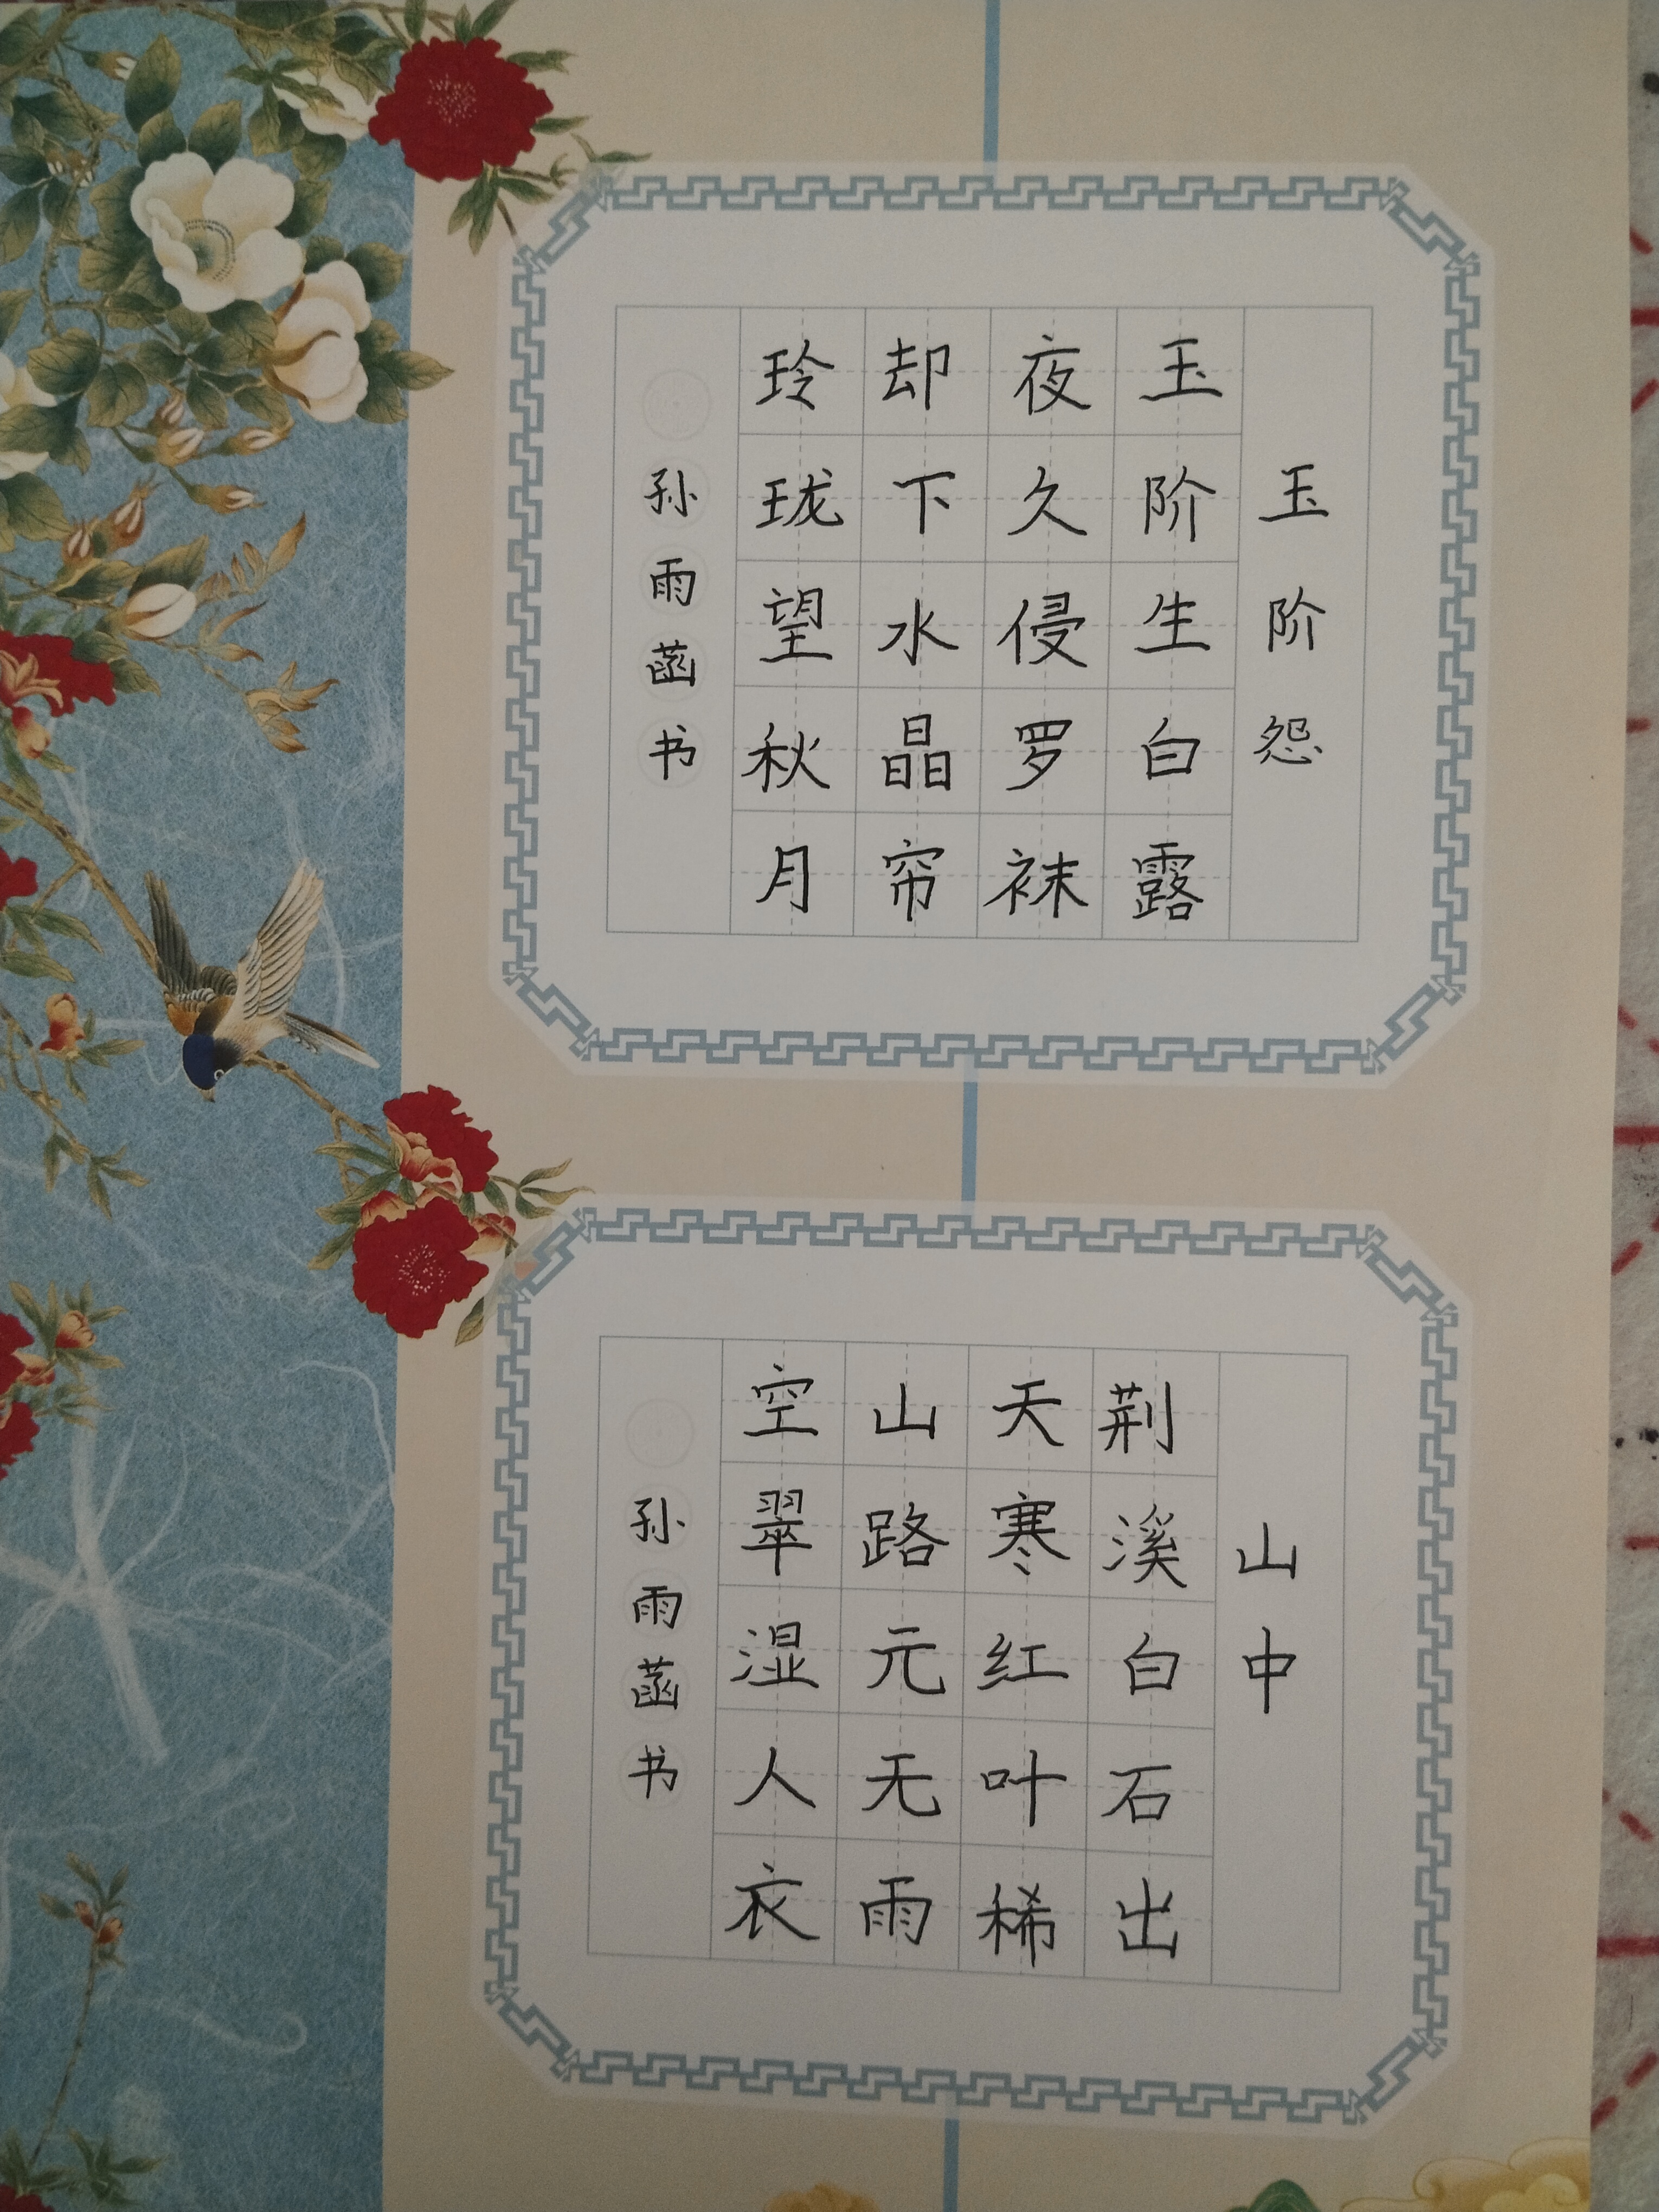 玉阶怨
玉阶生白露
夜久侵罗袜
却下水晶帘
玲珑望秋月
孙雨菡书
山中
荆溪白石出
天寒红叶稀
山路元无雨
空翠湿人衣
孙雨菡书